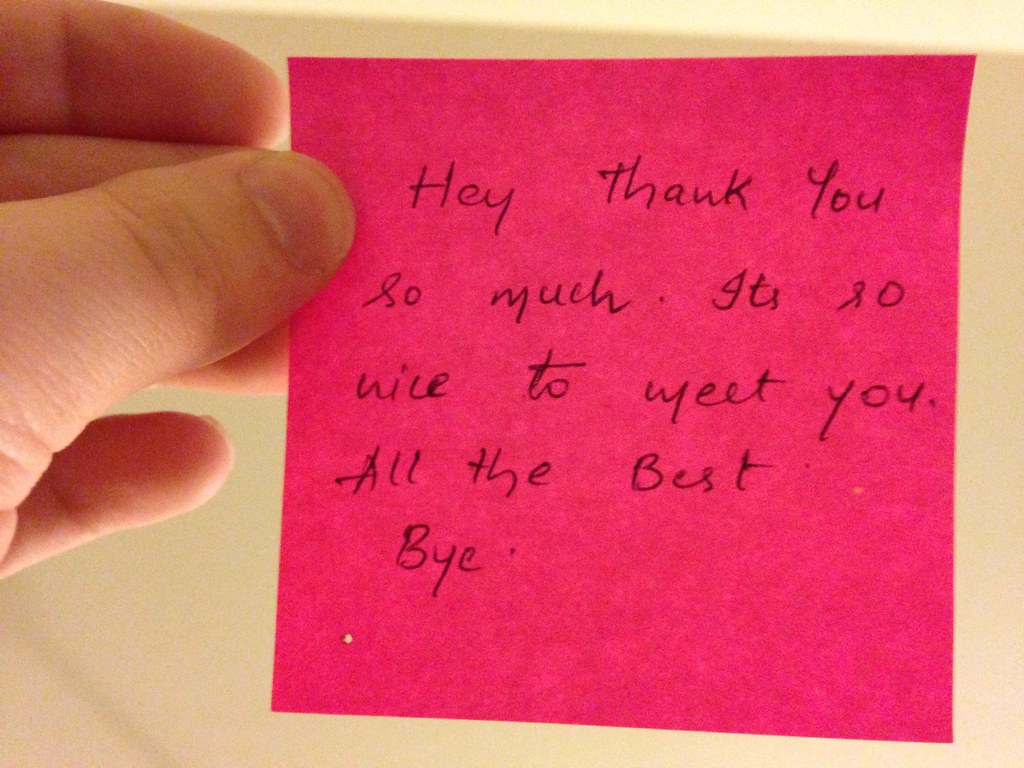 Hey Thank You
so much. Its so
nice to meet you.
All the Best.
Bye.